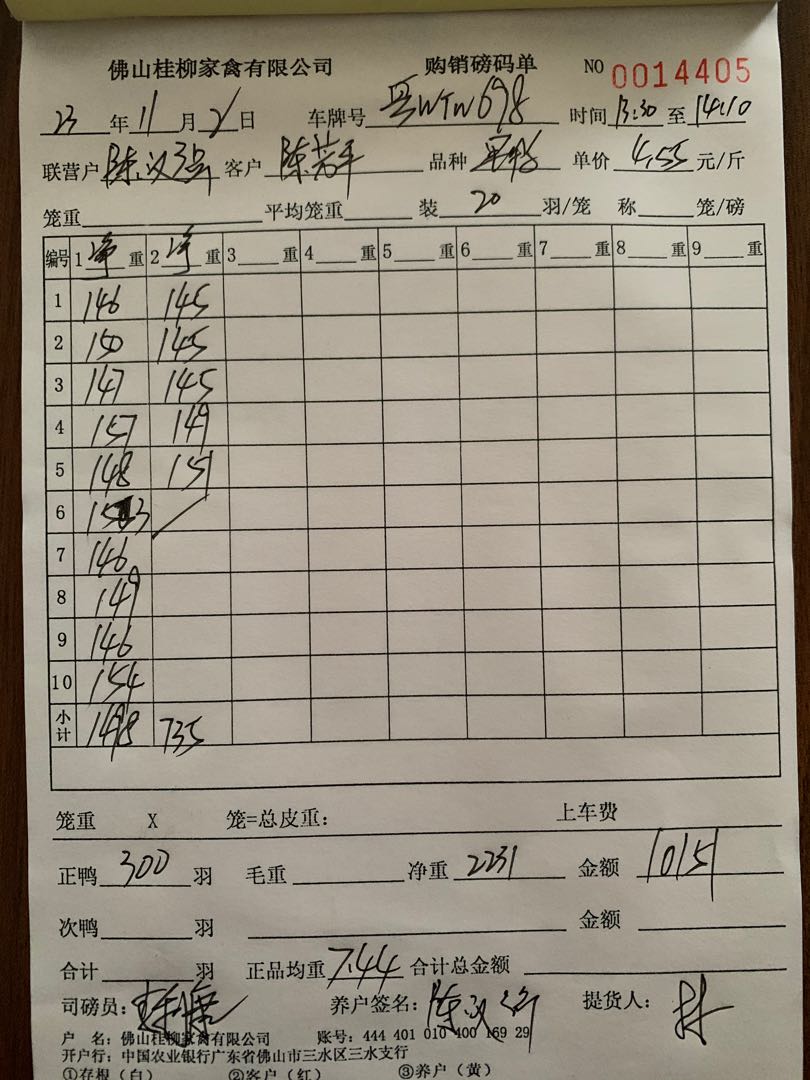 佛山桂柳家禽有限公司 购销磅码单 NO 0014405
23 年 11 月 2 日 车牌号 粤WTW698 时间 13:30 至 14:10
联营户 陈汉强 客户 陈芳平 品种 单价 4.55 元/斤
笼重 平均笼重 装 20 羽/笼 称 笼/磅
编号 1 净 重 2 净 重 3 重 4 重 5 重 6 重 7 重 8 重 9 重
1 146 145
2 150 145
3 147 145
4 157 149
5 148 151
6 153
7 146
8 149
9 146
10 154
小计 1498 735
笼重 X 笼=总皮重: 上车费
正鸭 300 羽 毛重 净重 2231 金额 10151
次鸭 羽 金额
合计 羽 正品均重 7.44 合计总金额
司磅员: 养户签名: 陈汉强 提货人: 林
户 名: 佛山桂柳家禽有限公司 账号: 444 401 010 400 169 29
开户行: 中国农业银行广东省佛山市三水区三水支行
①存根(白) ②客户(红) ③养户(黄)